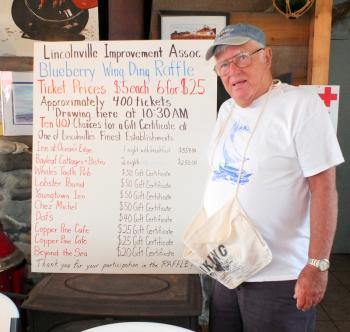 Lincolnville Improvement Assoc.
Blueberry Wing Ding Raffle
Ticket Prices $5 each 6 for $25
Approximately 400 tickets
Drawing here at 10:30 AM
Ten (10) Chances for a Gift Certificate at
One of Lincolnville's Finest Establishments
Inn at Oceans Edge 1 night with breakfast
Bayleaf Cottages + Bistro 2 nights
Whales Tooth Pub $50 Gift Certificate
Lobster Pound $50 Gift Certificate
Youngtown Inn $50 Gift Certificate
Chez Michel $50 Gift Certificate
Dots $40 Gift Certificate
Copper Pine Cafe $25 Gift Certificate
Copper Pine Cafe $25 Gift Certificate
Beyond the Sea $20 Gift Certificate
Thank you for your participation in the RAFFLE